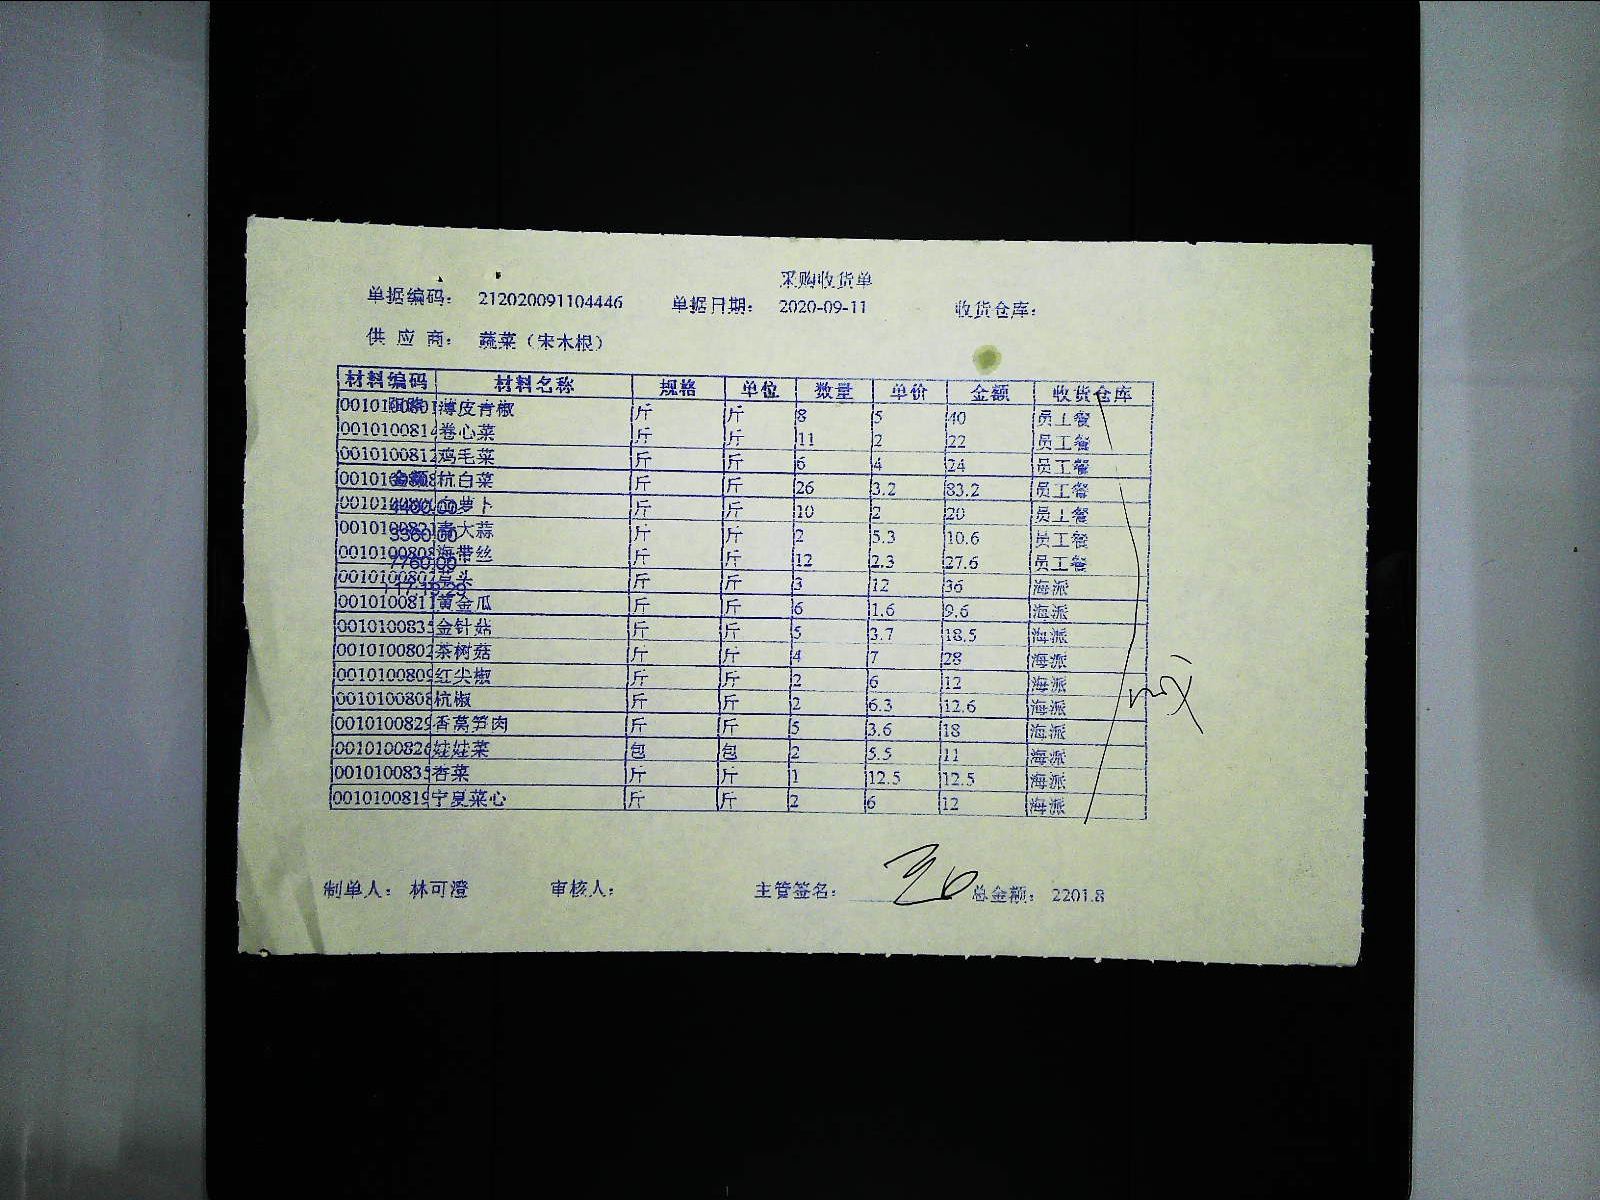 采购收货单
单据编码： 212020091104446 单据日期： 2020-09-11 收货仓库：
供 应 商： 蔬菜（宋木根）
材料编码 材料名称 规格 单位 数量 单价 金额 收货仓库
薄皮青椒 斤 斤 8 5 40 员工餐
001010081 卷心菜 斤 斤 11 2 22 员工餐
0010100812 鸡毛菜 斤 斤 6 4 24 员工餐
杭白菜 斤 斤 26 3.2 83.2 员工餐
萝卜 斤 斤 10 2 20 员工餐
大蒜 斤 斤 2 5.3 10.6 员工餐
海带丝 斤 斤 12 2.3 27.6 员工餐
斤 斤 3 12 36 海派
黄金瓜 斤 斤 6 1.6 9.6 海派
001010083 金针菇 斤 斤 5 3.7 18.5 海派
0010100802 茶树菇 斤 斤 4 7 28 海派
001010080 红尖椒 斤 斤 2 6 12 海派
0010100808 杭椒 斤 斤 2 6.3 12.6 海派
001010082 香莴笋肉 斤 斤 5 3.6 18 海派
001010082 娃娃菜 包 包 2 5.5 11 海派
001010083 香菜 斤 斤 1 12.5 12.5 海派
001010081 宁夏菜心 斤 斤 2 6 12 海派
制单人： 林可澄 审核人： 主管签名： 总金额： 2201.8